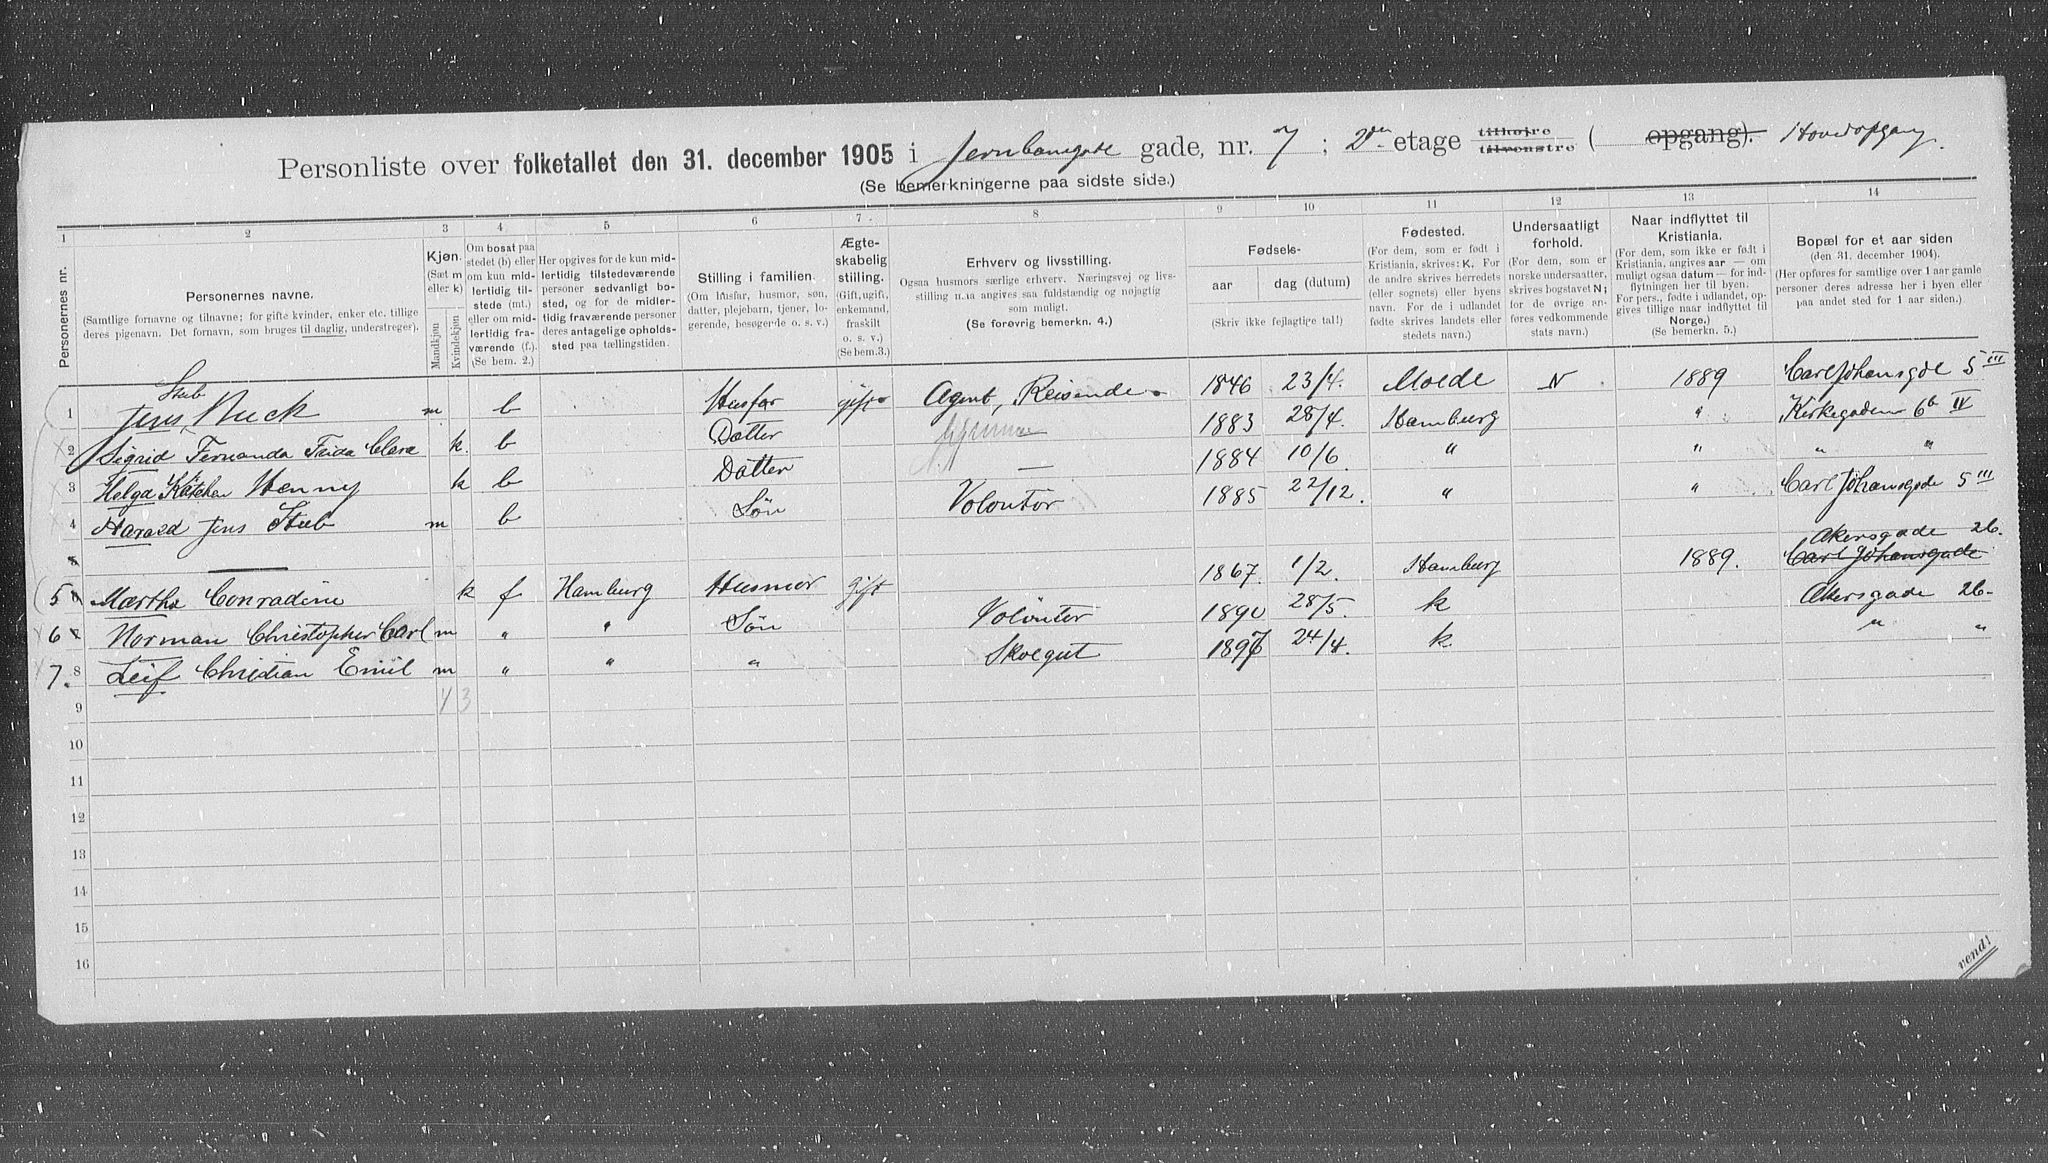 Personliste over folketallet den 31. december 1905 i Jernbanegade gade, nr. 7 ; 2den etage tilhøjre tilvenstre ( opgang). Hovedopgang.
(Se bemerkningerne paa sidste side.)
1 2 3 4 5 6 7. 8 9 10 11 12 13 14
Personernes nr.
Personernes navne.
(Samtlige fornavne og tilnavne; for gifte kvinder, enker etc. tillige deres pigenavn. Det fornavn, som bruges til daglig, understreges).
Kjøn.
(Sæt m eller k)
Mandkjøn
Kvindekjøn
Om bosat paa stedet (b) eller om kun midlertidig tilstede (mt.) eller om midlertidig fraværende (f.). (Se bem. 2.)
Her opgives for de kun midlertidig tilstedeværende personer sedvanligt bosted, og for de midlertidig fraværende personer deres antagelige opholdssted paa tællingstiden.
Stilling i familien.
(Om husfar, husmor, søn, datter, plejebarn, tjener, logerende, besøgende o. s. v.)
Ægteskabelig stilling.
(Gift, ugift, enkemand, fraskilt o. s. v.)
(Se bem.3.)
Erhverv og livsstilling.
Ogsaa husmors særlige erhverv. Næringsvej og livsstilling maa angives saa fuldstændig og nøjagtig som muligt.
(Se forøvrig bemerkn. 4.)
Fødsels-
aar dag (datum)
(Skriv ikke fejlagtige tal!)
Fødested.
(For dem, som er født i Kristiania, skrives: K. For de andre skrives herredets (eller sognets) eller byens navn. For de i udlandet fødte skrives landets eller stedets navn.)
Undersaatligt forhold.
(For dem, som er norske undersaatter, skrives bogstavet N; for de øvrige anføres vedkommende stats navn.)
Naar indflyttet til Kristiania.
(For dem, som ikke er født i Kristiania, angives aar — om muligt ogsaa datum — for indflytningen her til byen. For pers., fødte i udlandet, opgives tillige naar indflyttet til Norge.)
(Se bemerkn. 5.)
Bopæl for et aar siden
(den 31. december 1904).
(Her opføres for samtlige over 1 aar gamle personer deres adresse her i byen eller paa andet sted for 1 aar siden.)
1 Jens Stub Buck m b Husfar gift Agent, Reisende. 1846 23/4. Molde N 1889 Carl Johansgde 5 III
2 Sigrid Fernanda Frida Clara k. b Datter 1883 28/4. Hamburg " Kirkegaden 6b IV
3 Helga Kätchen Henny k b Datter — 1884 10/6. " " " "
4 Harald Jens Stub m b Søn Volontør 1885 22/12. " " Carl Johansgade 5 III
Akersgade 26.
5 Martha Conradine k f Hamburg Husmor gift 1867. 1/2. Hamburg 1889. Carl Johansgade
6 Norman Christopher Carl m " " Søn Volontør 1890 28/5. k Akersgade 26.
7. 8 Leif Christian Emil m " " " Skolegut 1897 24/4. k " "
4 3
9
10
11
12
13
14
15
16
vend!